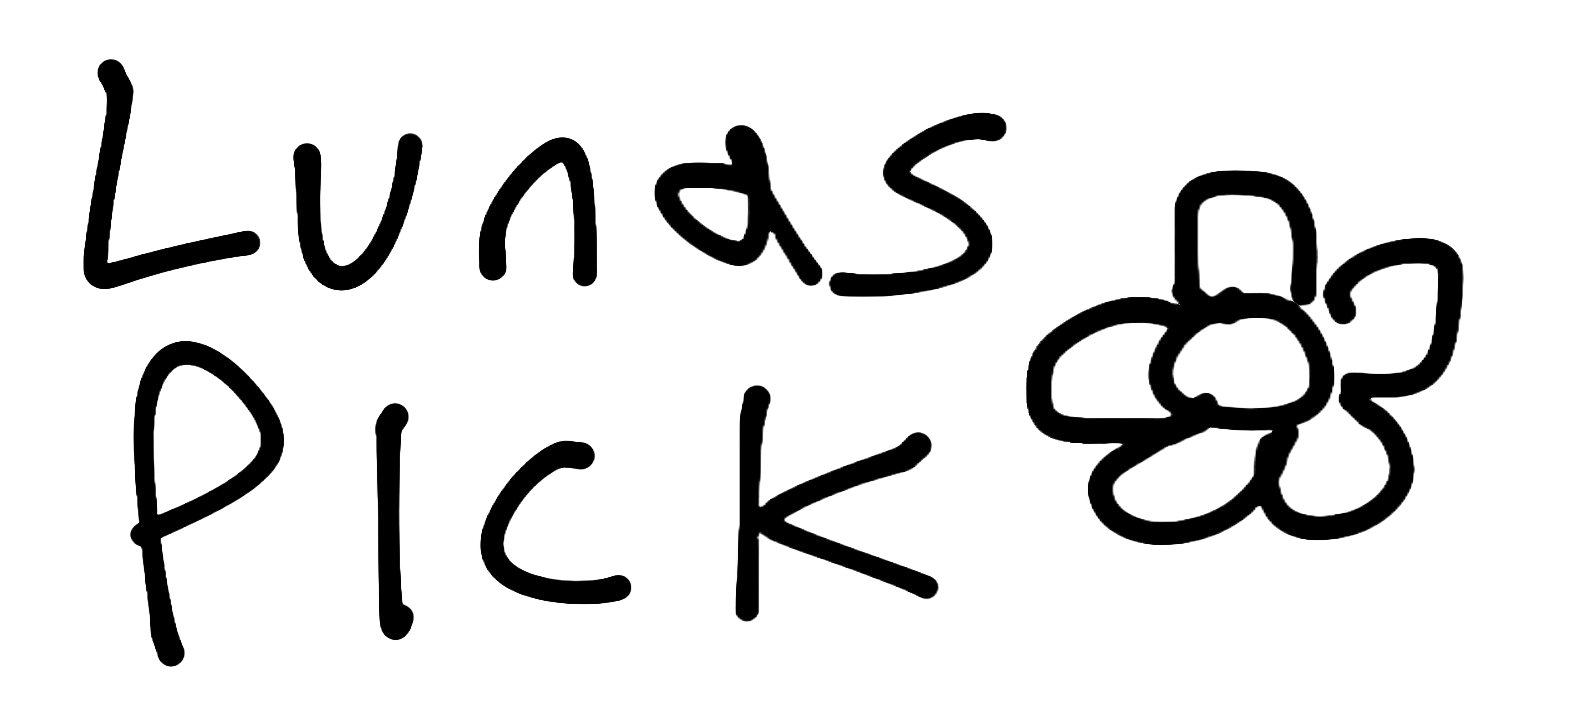 Lunas
PICK